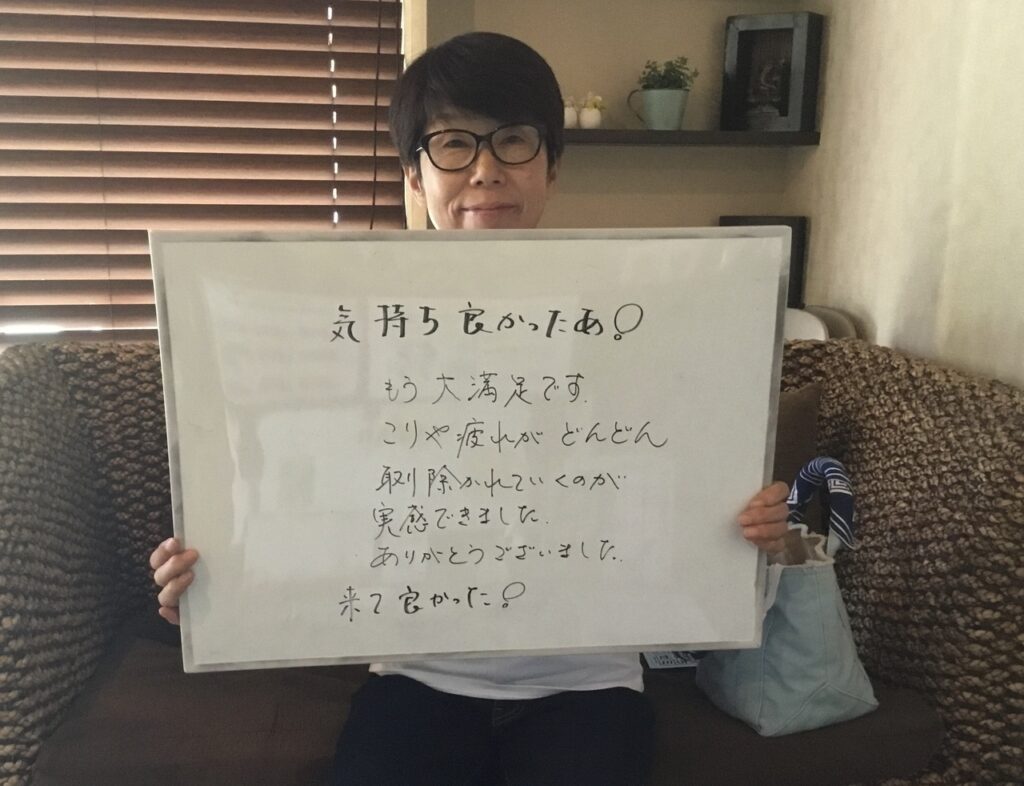 気持ち良かったあ!
もう大満足です.
こりや疲れがどんどん
取り除かれていくのが
実感できました.
ありがとうございました.
来て良かった!